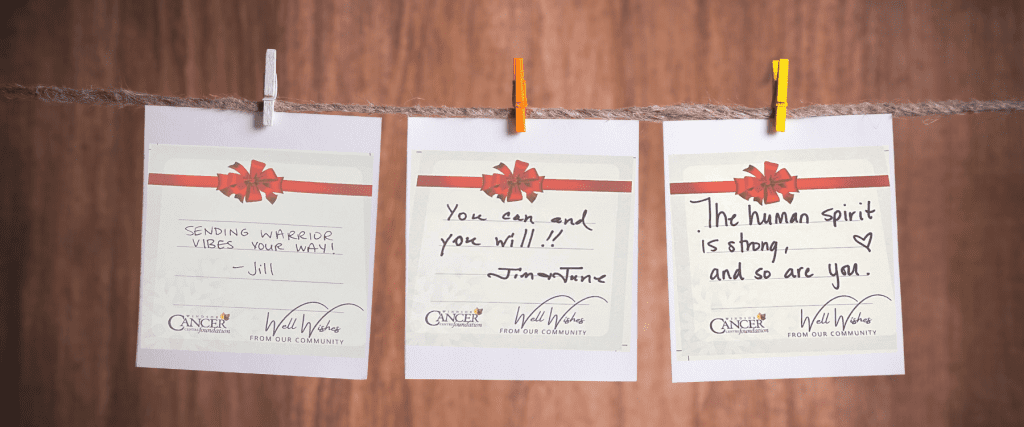 SENDING WARRIOR
VIBES YOUR WAY!
-Jill
WINDSOR
CANCER
CENTRE foundation
Well Wishes
FROM OUR COMMUNITY
You can and
you will!!
Jim & June
WINDSOR
CANCER
CENTRE foundation
Well Wishes
FROM OUR COMMUNITY
The human spirit
is strong,
and so are you.
WINDSOR
CANCER
CENTRE foundation
Well Wishes
FROM OUR COMMUNITY